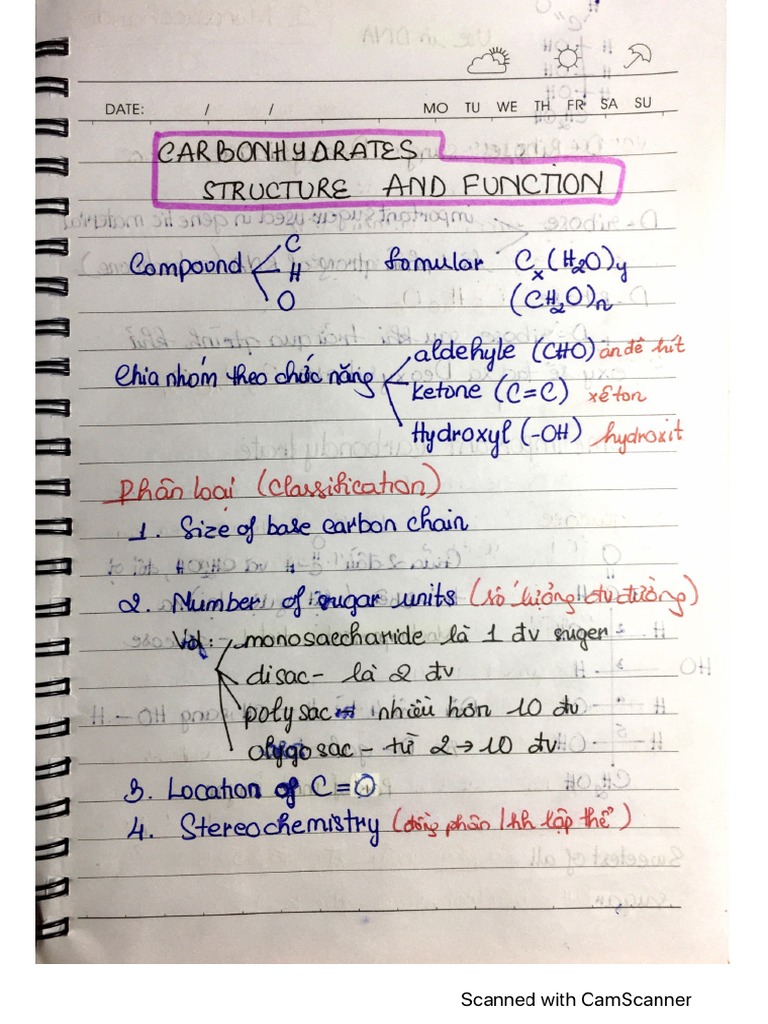 DATE: / / MO TU WE TH FR SA SU
CARBONHYDRATES
STRUCTURE AND FUNCTION
Compound C fomular Cx(H2O)y
H
O (CH2O)n
aldehyle (CHO) anđê hít
Chia nhóm theo chức năng ketone (C=C) xêton
Hydroxyl (-OH) hydroxit
Phân loại (Classification)
1. Size of base carbon chain
2. Number of sugar units (số lượng đv đường)
monosaccharide là 1 đv suger
disac- là 2 đv
polysac nhiều hơn 10 đv
olygosac - từ 2→10 đv
3. Location of C=O
4. Stereochemistry (đồng phân / hh lập thể)
Scanned with CamScanner